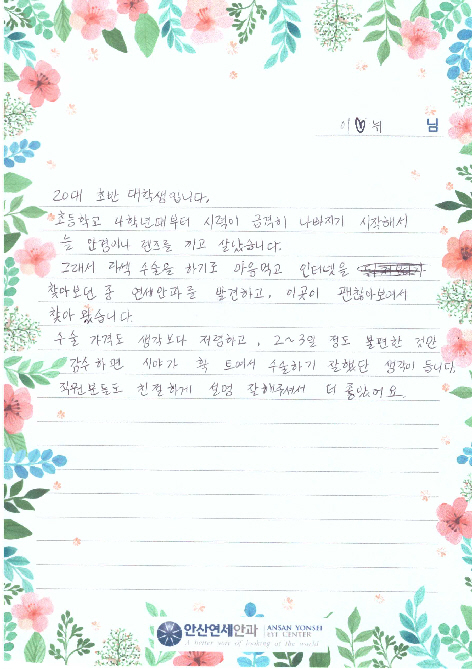 이♡뉘 님
20대 초반 대학생입니다.
초등학교 4학년때부터 시력이 급격히 나빠지기 시작해서
늘 안경이나 렌즈를 끼고 살았습니다.
그래서 라섹 수술을 하기로 마음먹고 인터넷을
찾아보던 중 연세안과를 발견하고, 이곳이 괜찮아보여서
찾아 왔습니다.
수술 가격도 생각보다 저렴하고, 2~3일 정도 불편한 것만
감수하면 시야가 확 트여서 수술하기 잘했단 생각이 듭니다.
직원분들도 친절하게 설명 잘해주셔서 더 좋았어요.
안산연세안과 ANSAN YONSEI
EYE CENTER
A better way of looking at the world